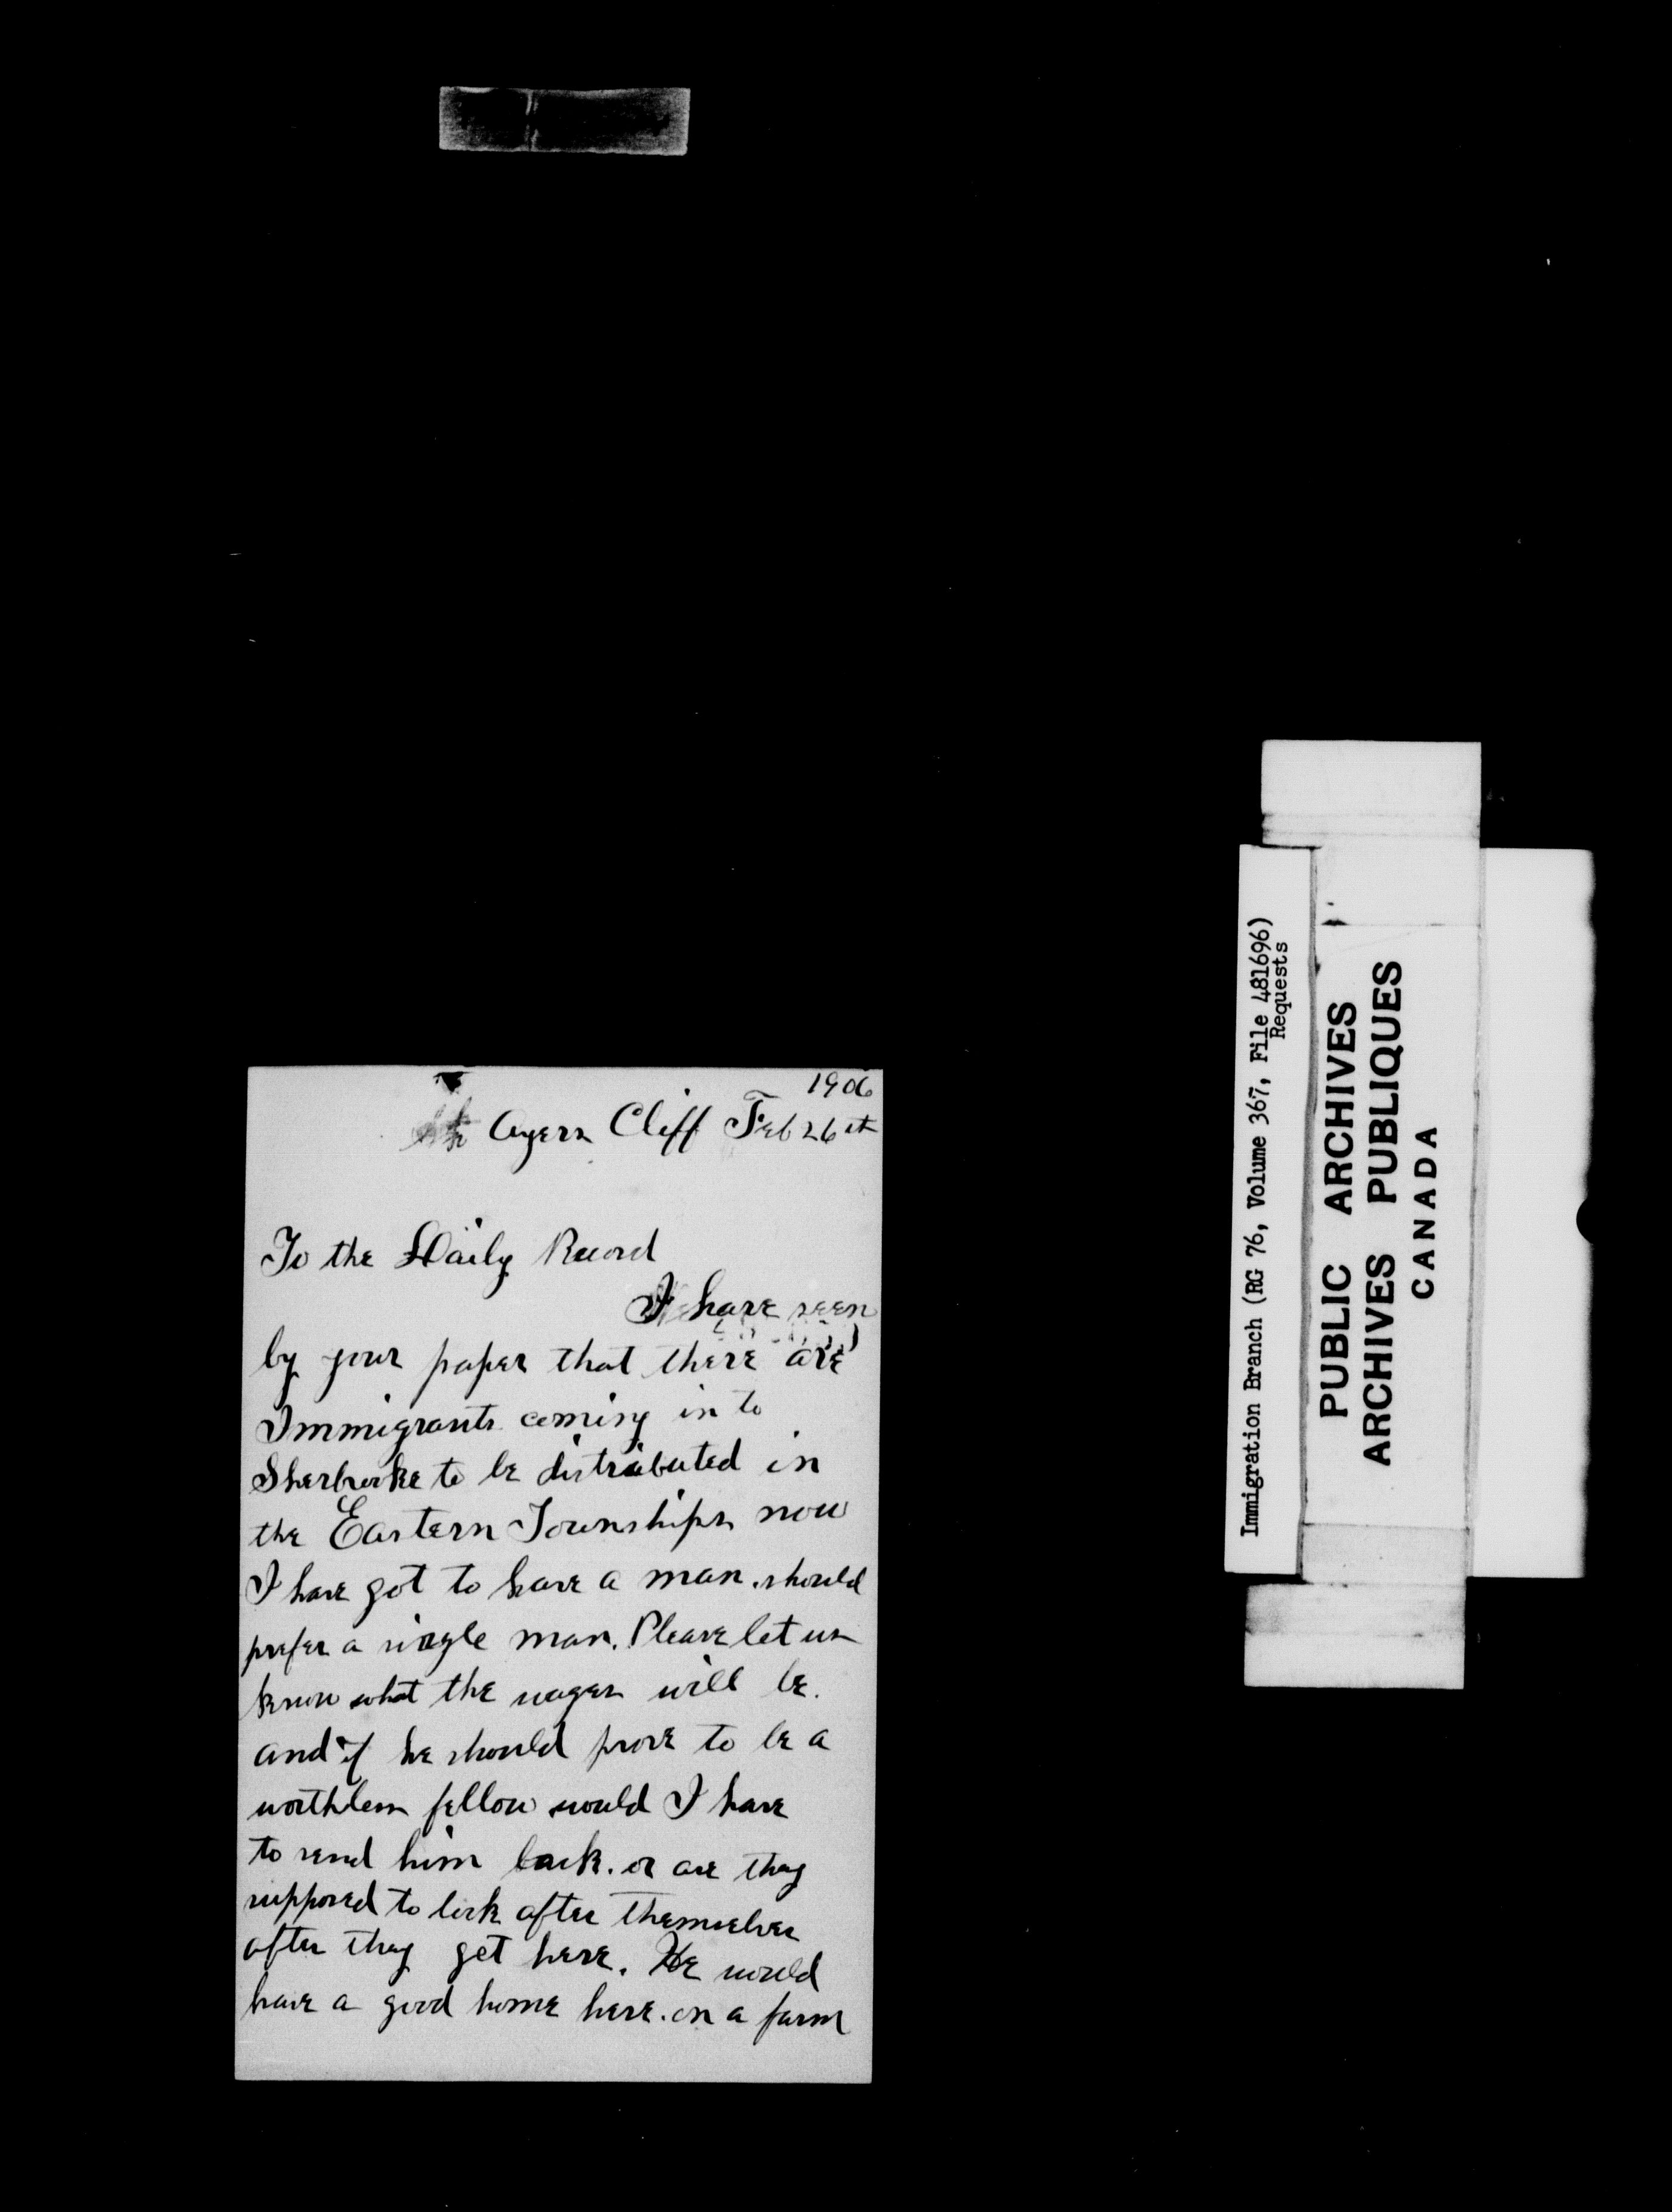 1906
Ayers Cliff Feb 26th
To the Daily Record
I have seen
by your paper that there are
Immigrants coming in to
Sherbrooke to be distributed in
the Eastern Townships now
I have got to have a man. should
prefer a single man. Please let us
know what the wages will be.
and if he should prove to be a
worthless fellow would I have
to send him back. or are they
supposed to look after themselves
after they get here. He would
have a good home here. on a farm
Immigration Branch (RG 76, Volume 367, File 481696)
Requests
PUBLIC ARCHIVES
ARCHIVES PUBLIQUES
CANADA